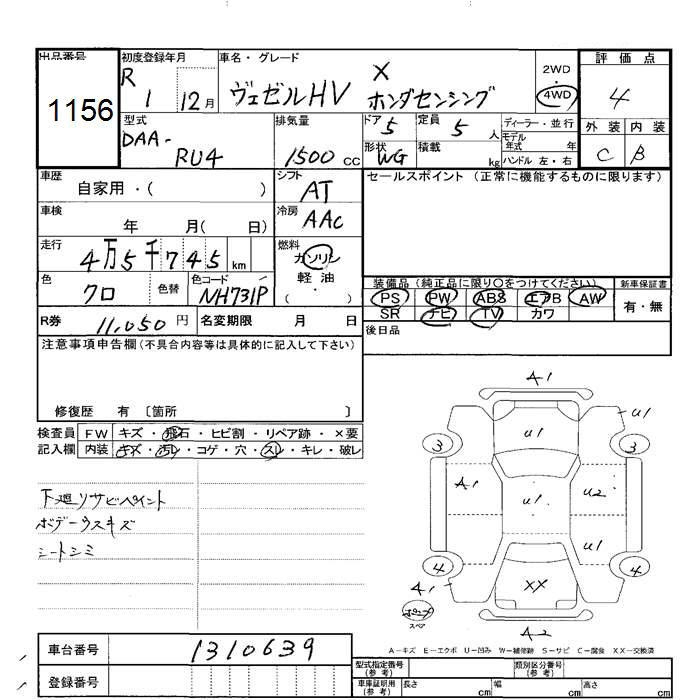 出品番号 初度登録年月 車名・グレード 評価点
1156 R1 12月 ヴェゼルHV X ホンダセンシング 2WD 4WD 4
型式 排気量 ドア 5 定員 5人 ディーラー・並行 外装 内装
DAA-RU4 1500cc 形状 WG 積載 kg モデル年式 年 ハンドル 左・右 C B
車歴 自家用・( ) シフト AT セールスポイント (正常に機能するものに限ります)
車検 年 月( 日) 冷房 AAC
走行 4万5千745km 燃料 ガソリン 軽油 ( )
色 クロ 色替 色コード NH731P
装備品(純正品に限り○をつけてください) 新車保証書
PS PW ABS エアB AW 有・無
SR ナビ TV カワ
R券 11,050円 名変期限 月 日 後日品
注意事項申告欄(不具合内容等は具体的に記入して下さい)
修復歴 有 〔箇所 〕
検査員 FW キズ・飛石・ヒビ割・リペア跡・×要
記入欄 内装 キズ・汚レ・コゲ・穴・スレ・キレ・破レ
下廻リサビペイント
ボデーウスキズ
シートシミ
A1
U1 U1
3 3
A1 U1 U2
U1
4 4
A1 XX
スペア
A2
A-キズ E-エクボ U-凹み W-補修跡 S-サビ C-腐食 XX-交換済
車台番号 1310639
登録番号
型式指定番号(参考) 類別区分番号(参考)
車庫証明用(参考) 長さ cm 幅 cm 高さ cm